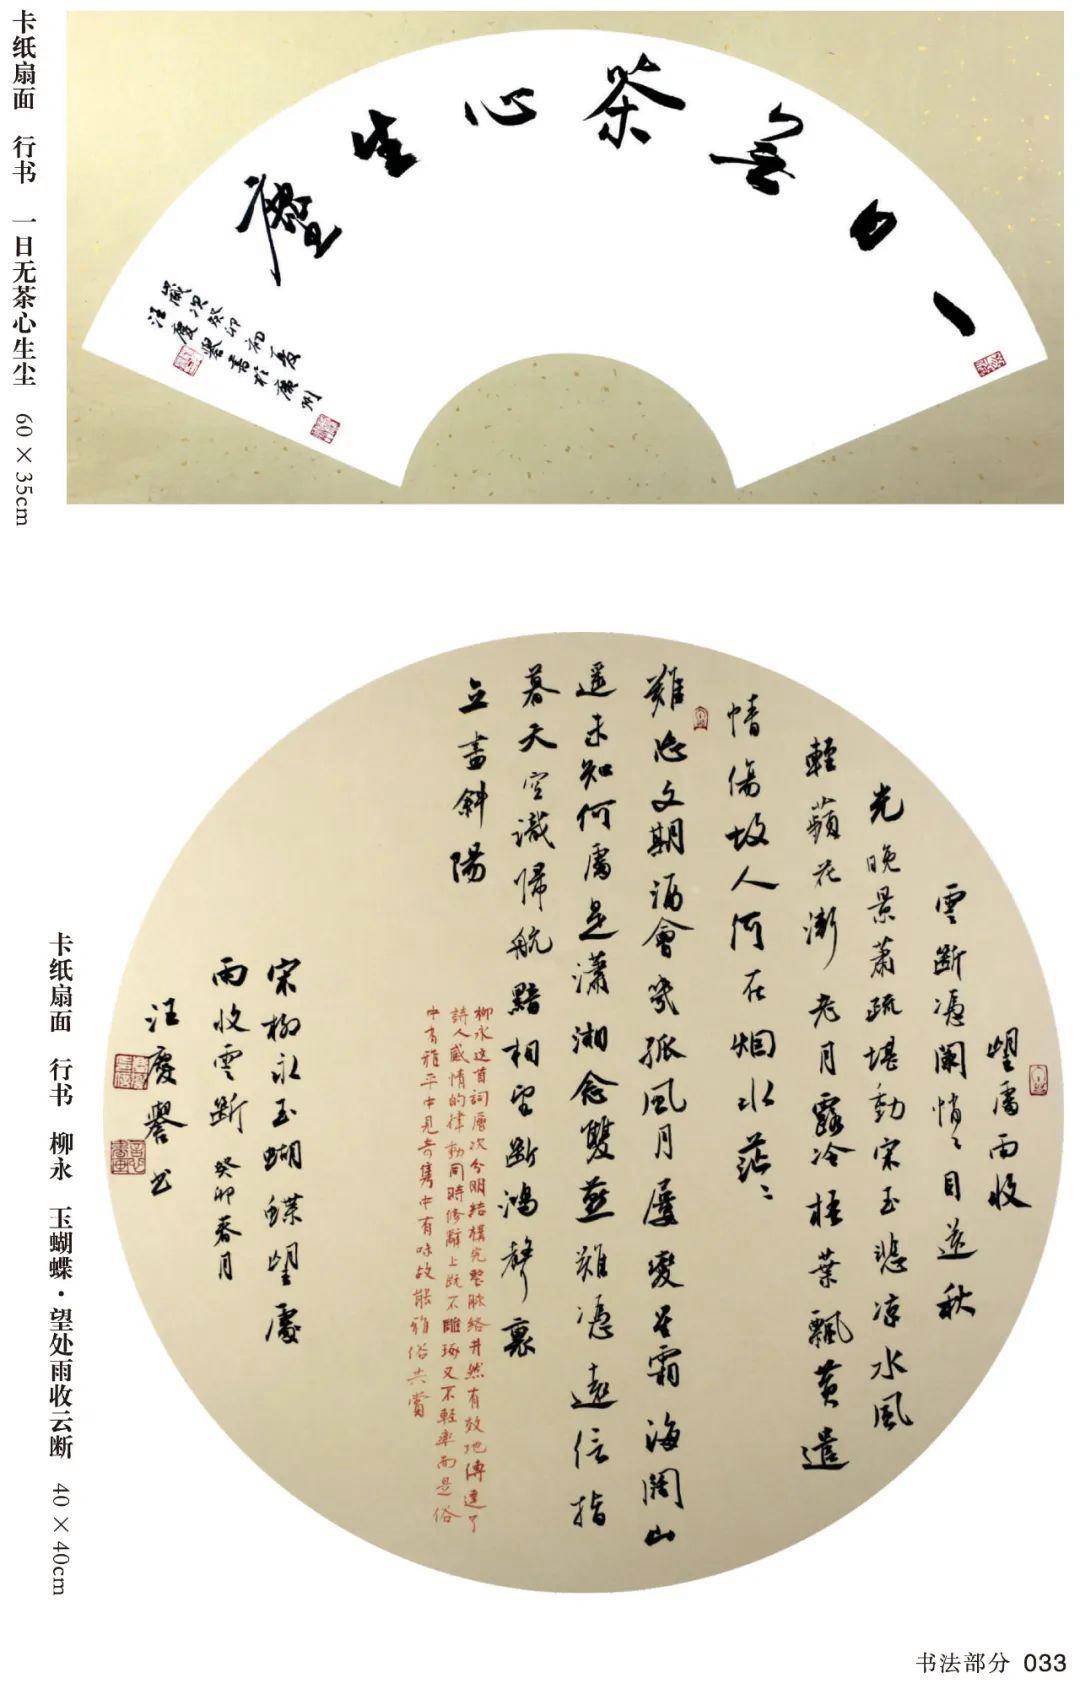 卡纸扇面 行书 一日无茶心生尘 60×35cm
一日無茶心生塵
歲次癸卯初夏廣州
汪慶譽書於
望處雨收
雲斷憑闌悄〻目送秋
光晚景蕭疏堪動宋玉悲凉水風
輕蘋花漸老月露冷梧葉飄黃遣
情傷故人何在烟水茫〻
難忘文期酒會幾孤風月屢變星霜海闊山
遥未知何處是瀟湘念雙燕難憑遠信指
暮天空識歸航黯相望斷鴻聲裏
立盡斜陽
柳永这首詞層次分明結構完整脉絡井然有效地傳達了
詩人感情的律動同時修辭上既不雕琢又不輕率而是俗
中有雅平中見奇雋中有味故能雅俗共賞
宋柳永玉蝴蝶望處
雨收雲斷 癸卯春月
汪慶譽書
卡纸扇面 行书 柳永 玉蝴蝶·望处雨收云断 40×40cm
书法部分 033